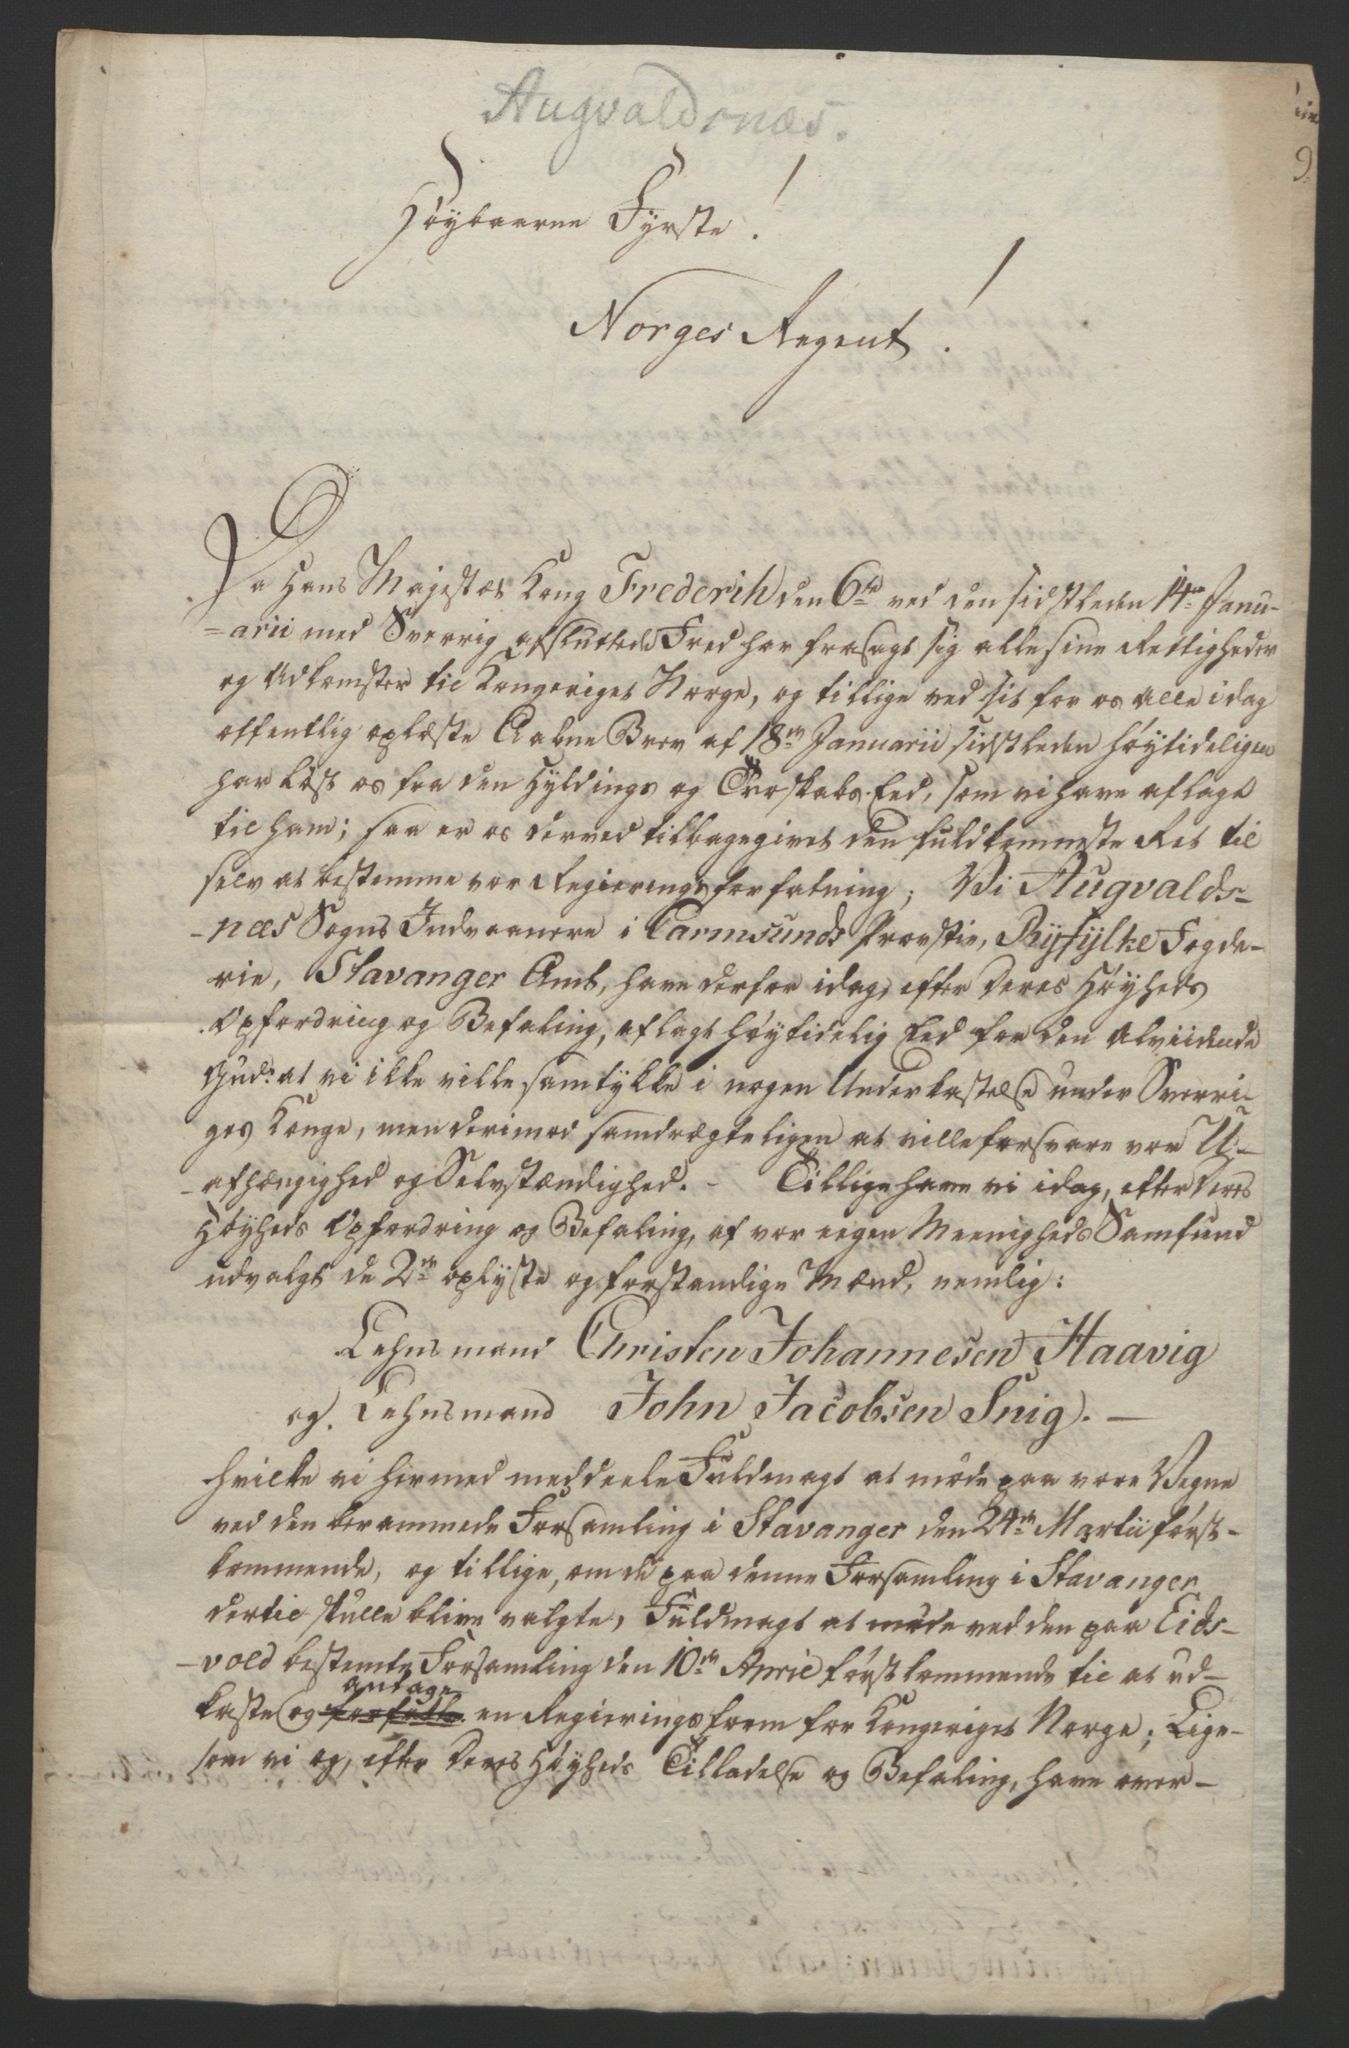 Augvaldsnæs.
Høybaarne Fyrste!
Norges Regent!
Da Hans Majestæt Kong Frederik den 6te ved den sidstleden 14de Janu-
=arii med Sverrig afsluttede Fred har frasagt sig alle sine Rettigheder
og Adkomster til Kongeriget Norge, og tillige ved sit for os alle i dag
offentlig oplæste Aabne Brev af 18de Januarii sidstleden høytideligen
har løst os fra den Hyldings og Troskabs-Eed, som vi have aflagt
til ham; saa er os derved tilbagegivet den fuldkomneste Ret til
selv at bestemme vor Regieringsforfatning; Vi Augvalds-
-næs Sogns Indvaanere i Carmsunds Provstie, Ryfylke Fogde-
rie, Stavanger Amt, have derfor idag, efter Deres Høyheds
Opfordring og Befaling, aflagt høytidelig Eed for den Alviidende
Gud: at vi ikke ville samtykke i nogen Underkastelse under Sverri-
ges Konge, men derimod samdrægteligen at ville forsvare vor U-
-afhængighed og Selvstændighed. - Tillige have vi idag, efter Deres
Høyheds Opfordring og Befaling, af vor eegen Meenigheds Samfund
udvalgt de 2de oplyste og forstandige Mænd, nemlig:
Lehnsmand Christen Johannesen Haavig
og Lehnsmand John Jacobsen Snig. —
hvilke vi hermed meddeele Fuldmagt at møde paa vore Vegne
ved den berammede Forsamling i Stavanger den 24de Martii først-
kommende, og tillige, om de paa denne Forsamling i Stavanger
dertil skulle blive valgte, Fuldmagt at møde ved den paa Eids-
-vold bestemte Forsamling den 10de April førstkommende til at ud-
antage
kaste og forfatte en Regieringsform for Kongeriget Norge; Lige-
som vi og, efter Deres Høyheds Tilladelse og Befaling, have over-